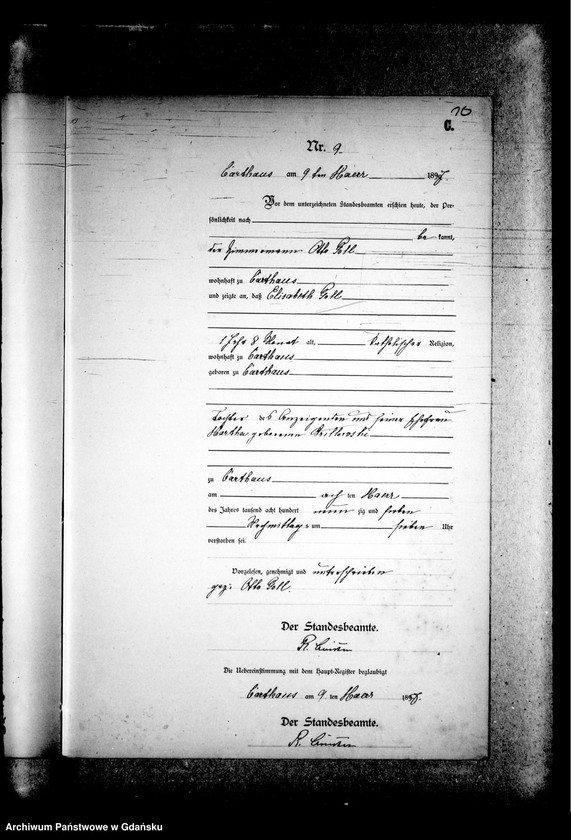 C.
Nr. 9.
Carthaus am 9 ten Maerz 1897.
Vor dem unterzeichneten Standesbeamten erschien heute, der Per-
sönlichkeit nach
be kannt,
der Zimmermann Otto
wohnhaft zu Carthaus
und zeigte an, daß Elisabeth
1 Jahr 8 Monat alt, katholischer Religion,
wohnhaft zu Carthaus
geboren zu Carthaus
Tochter des Anzeigenden und seiner Ehefrau
Martha geborenen
zu Carthaus
am ach ten Maerz
des Jahres tausend acht hundert neun zig und sieben
Nachmittags um sieben Uhr
verstorben sei.
Vorgelesen, genehmigt und unterschrieben
gez. Otto
Der Standesbeamte.
R.
Die Uebereinstimmung mit dem Haupt-Register beglaubigt
Carthaus am 9 ten Maerz 1897.
Der Standesbeamte.
R.
Archiwum Państwowe w Gdańsku